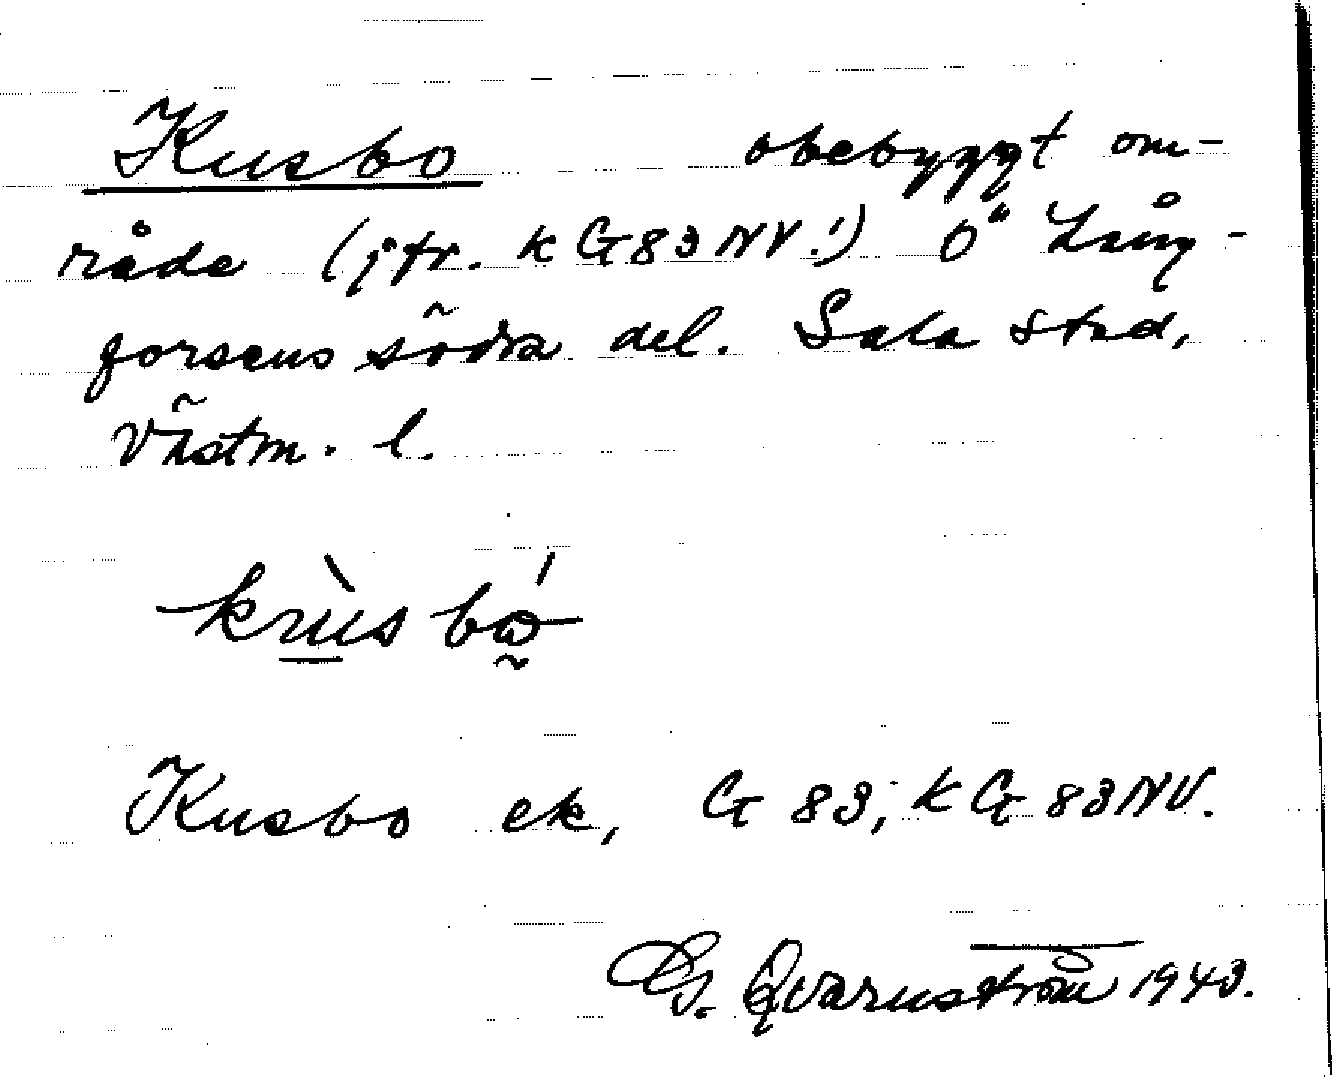 Kusbo obebyggt om-
råde (jfr. k G 83 NV.!) Ö" Lång-
forsens södra del. Sala stad,
Västm. l.
Kusbo ek, G 83; k G 83 NV.
G. Qvarnström 1943.